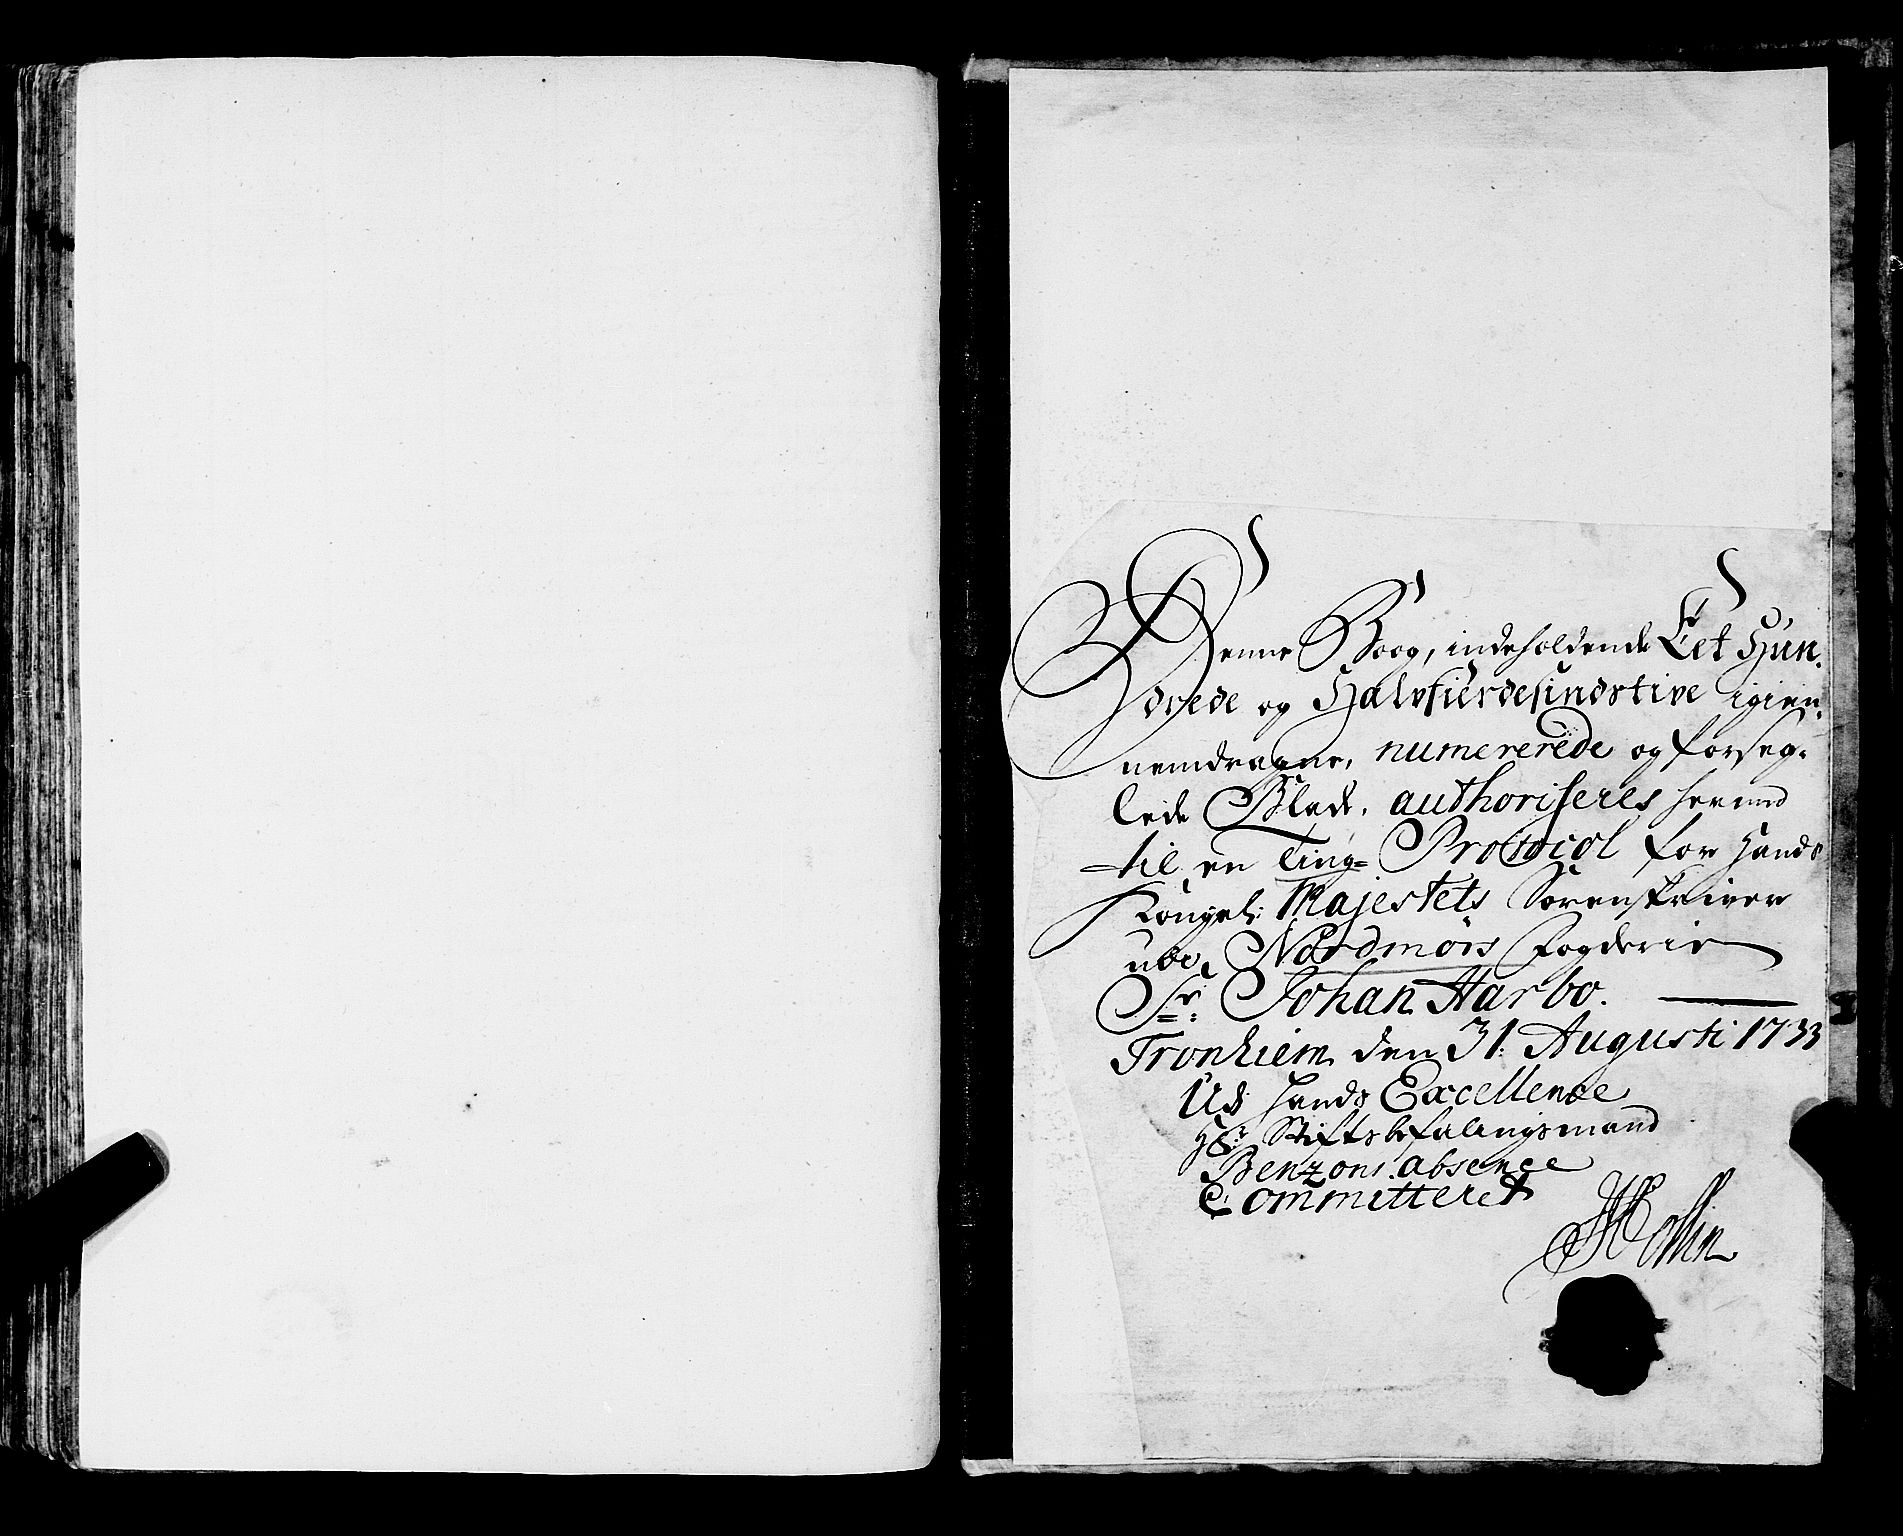 Denne Boog, indeholdende Eet Hun-
drede og Halvfierdesindstive igien-
nemdragne, numererede og forseg-
lede Blade, authoriseres herved
til en Ting-Protocol for Hands
Kongel: Majestets Sorenskriver
over Nordmørs Fogderie
Sr. Johan Harbo.
Tronhiem den 31. Augusti 1733
Udi Hands Excellence
Hr: Stiftsbefalingsmand
Benzons absence
Committeret